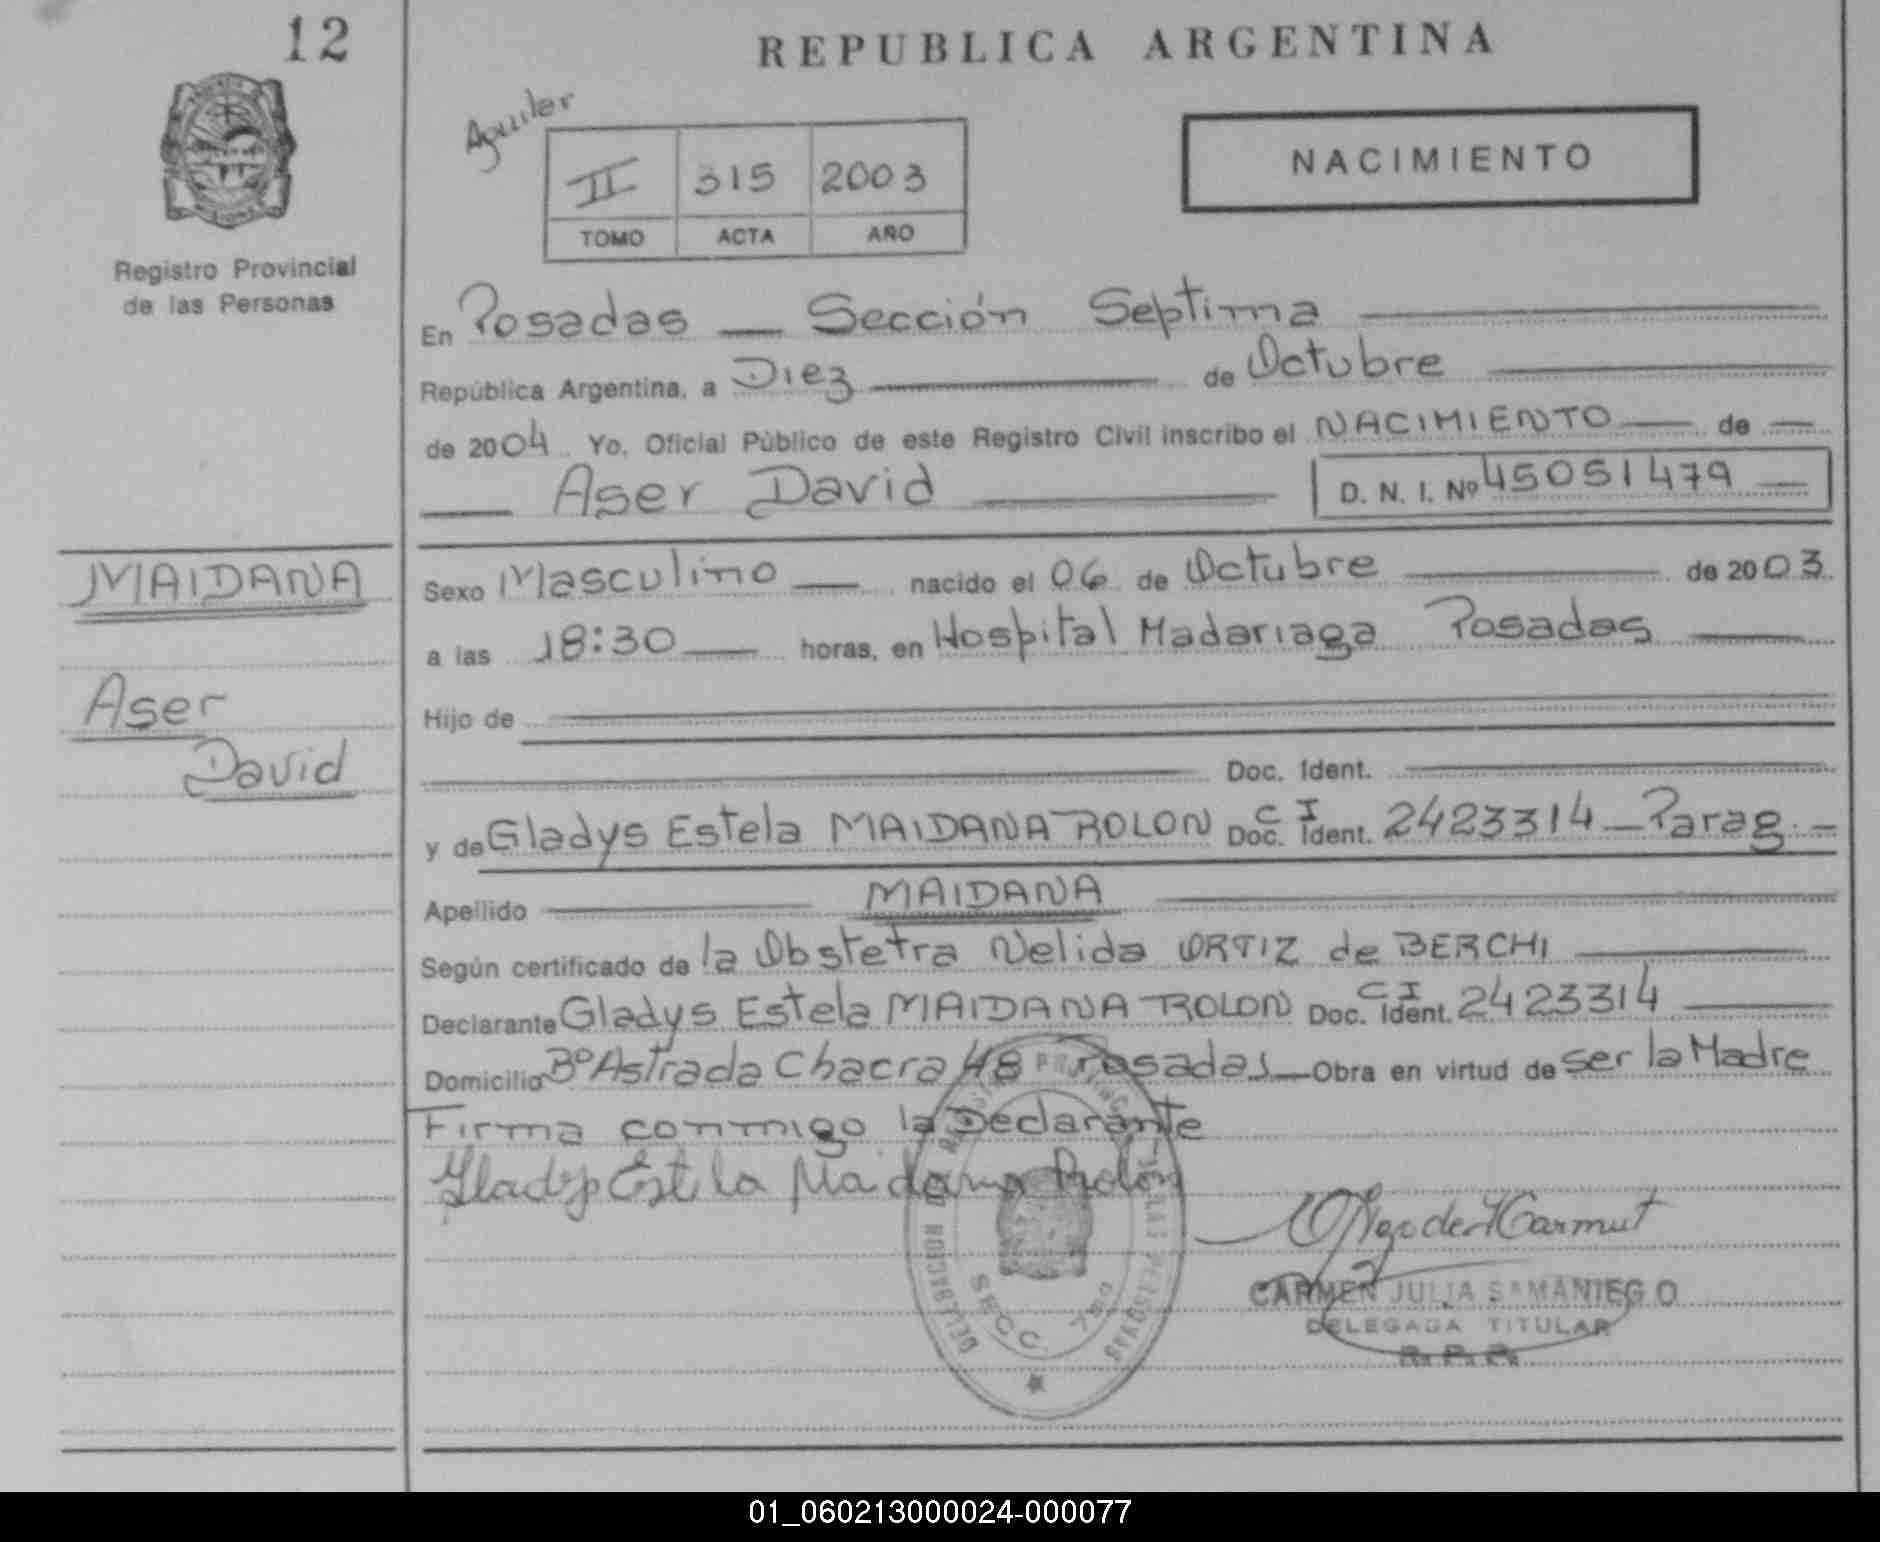 12
REPUBLICA ARGENTINA
Aguiler
II 315 2003
TOMO ACTA AÑO
NACIMIENTO
Registro Provincial
de las Personas
En Posadas — Sección Septima
República Argentina, a Diez de Octubre
de 2004 Yo, Oficial Público de este Registro Civil inscribo el NACIMIENTO — de —
Aser David D. N. I. Nº 45051479 —
MAIDANA
Aser
David
Sexo Masculino — nacido el 06 de Octubre de 2003
a las 18:30 — horas, en Hospital Madariaga Posadas —
Hijo de
Doc. Ident.
y de Gladys Estela MAIDANA ROLON C I Doc. Ident. 2423314 — Parag. —
Apellido MAIDANA
Según certificado de la Obstetra Nelida ORTIZ de BERCHI
Declarante Gladys Estela MAIDANA ROLON C I Doc. Ident. 2423314
Domicilio Bº Astrada Chacra 48 Posadas — Obra en virtud de ser la Madre
Firma conmigo la Declarante
Gladys Estela Maidana Rolón
DELEGACION
DE LAS PERSONAS
SECC. 7ma
CARMEN JULIA SAMANIEGO
DELEGADA TITULAR
R.P.P.
01_060213000024-000077